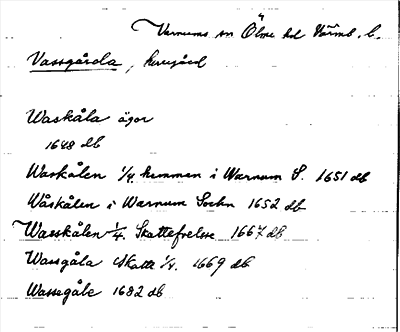 Varnums sn Ölme hd Värml. l.
Vassgårda, herrgård
Waskåla ägor
1648 db
Waskålen 1/4 hemman i Warnum S. 1651 db
Wåskålen i Warnum Sochn 1652 db
Waeskålen 1/4. Skattefrelsse 1667 db
Wassgåla skatte 1/4. 1669 db
Wassegåle 1682 db